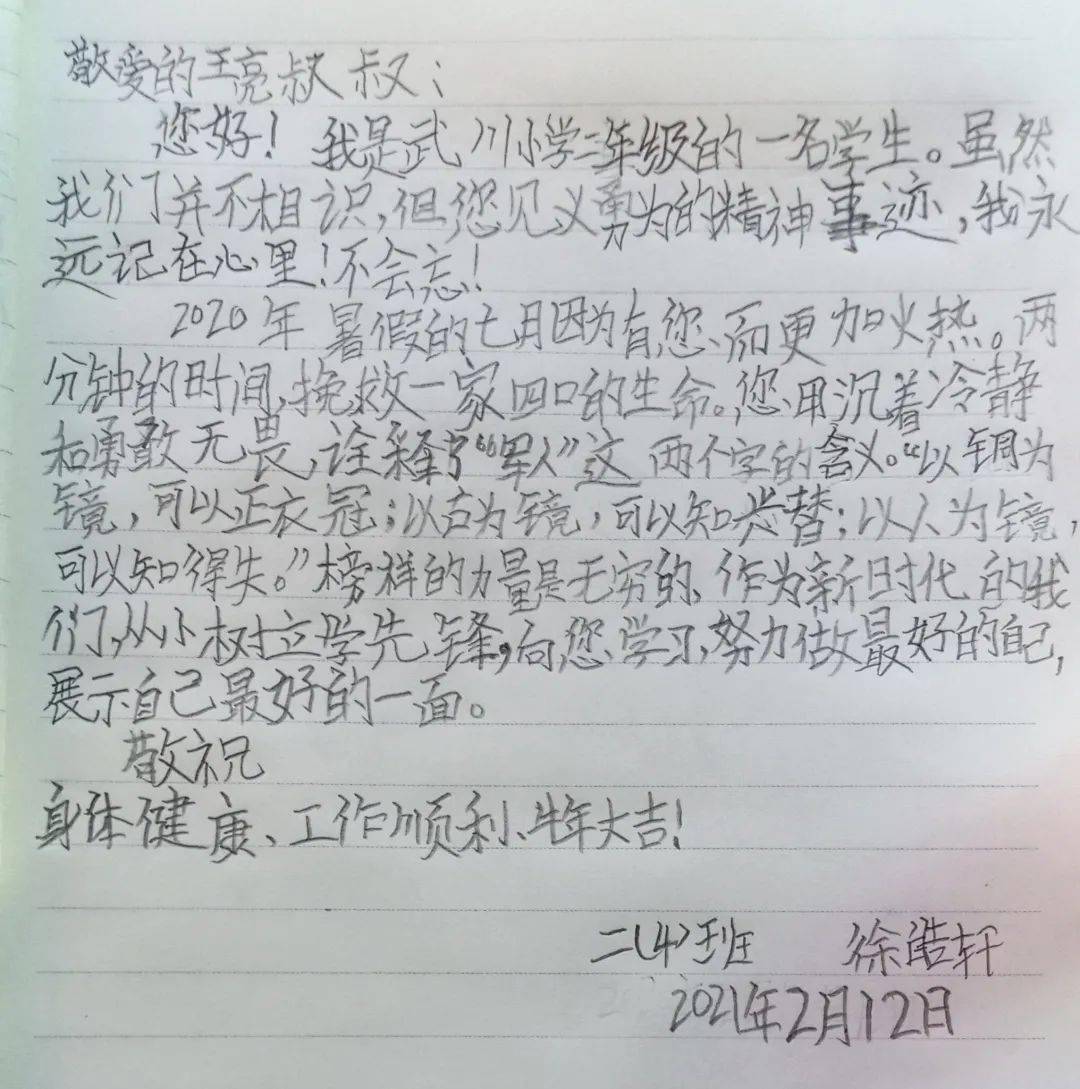 敬爱的王亮叔叔：
您好！我是武川小学二年级的一名学生。虽然
我们并不相识，但您见义勇为的精神事迹，我永
远记在心里！不会忘！
2020年暑假的七月因为有您而更加火热。两
分钟的时间，挽救一家四口的生命。您用沉着冷静
和勇敢无畏，诠释了“军人”这两个字的含义。“以铜为
镜，可以正衣冠；以古为镜，可以知兴替；以人为镜，
可以知得失。”榜样的力量是无穷的，作为新时代的我
们，从小树立学先锋，向您学习，努力做最好的自己，
展示自己最好的一面。
敬祝
身体健康、工作顺利、牛年大吉！
二（4）班 徐浩轩
2021年2月12日